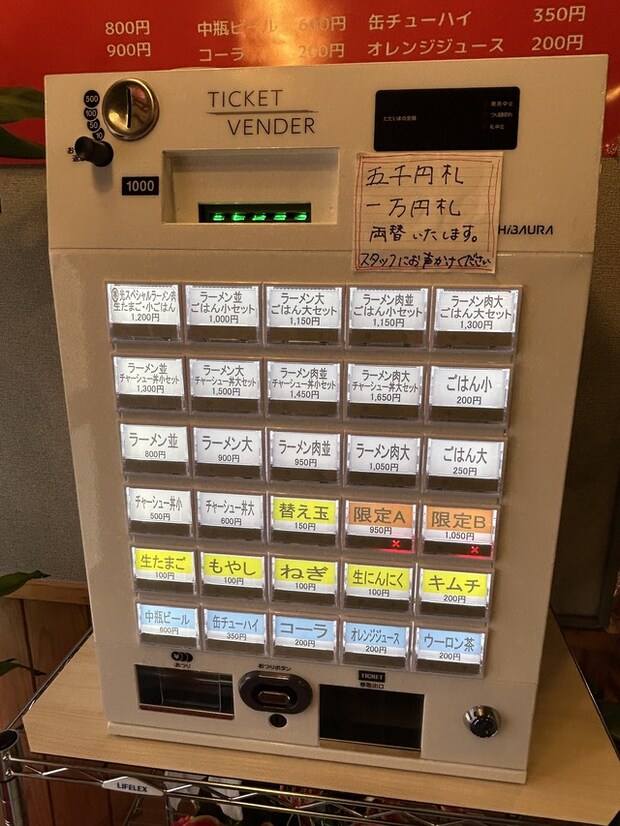 800円 中瓶ビール 600円 缶チューハイ 350円
900円 コーラ 200円 オレンジジュース 200円
500
100
50
10
TICKET
VENDER
1000
五千円札
一万円札
両替いたします。
スタッフにお声かけください
HIBAURA
光スペシャルラーメン肉
生たまご・小ごはん
1,200円
ラーメン並
ごはん小セット
1,000円
ラーメン大
ごはん大セット
1,150円
ラーメン肉並
ごはん小セット
1,150円
ラーメン肉大
ごはん大セット
1,300円
ラーメン並
チャーシュー丼小セット
1,300円
ラーメン大
チャーシュー丼大セット
1,500円
ラーメン肉並
チャーシュー丼小セット
1,450円
ラーメン肉大
チャーシュー丼大セット
1,650円
ごはん小
200円
ラーメン並
800円
ラーメン大
900円
ラーメン肉並
950円
ラーメン肉大
1,050円
ごはん大
250円
チャーシュー丼小
500円
チャーシュー丼大
600円
替え玉
150円
限定A
950円
限定B
1,050円
生たまご
100円
もやし
100円
ねぎ
100円
生にんにく
100円
キムチ
200円
中瓶ビール
600円
缶チューハイ
350円
コーラ
200円
オレンジジュース
200円
ウーロン茶
200円
おつり
おつりボタン
TICKET
券取出口
LIFELEX